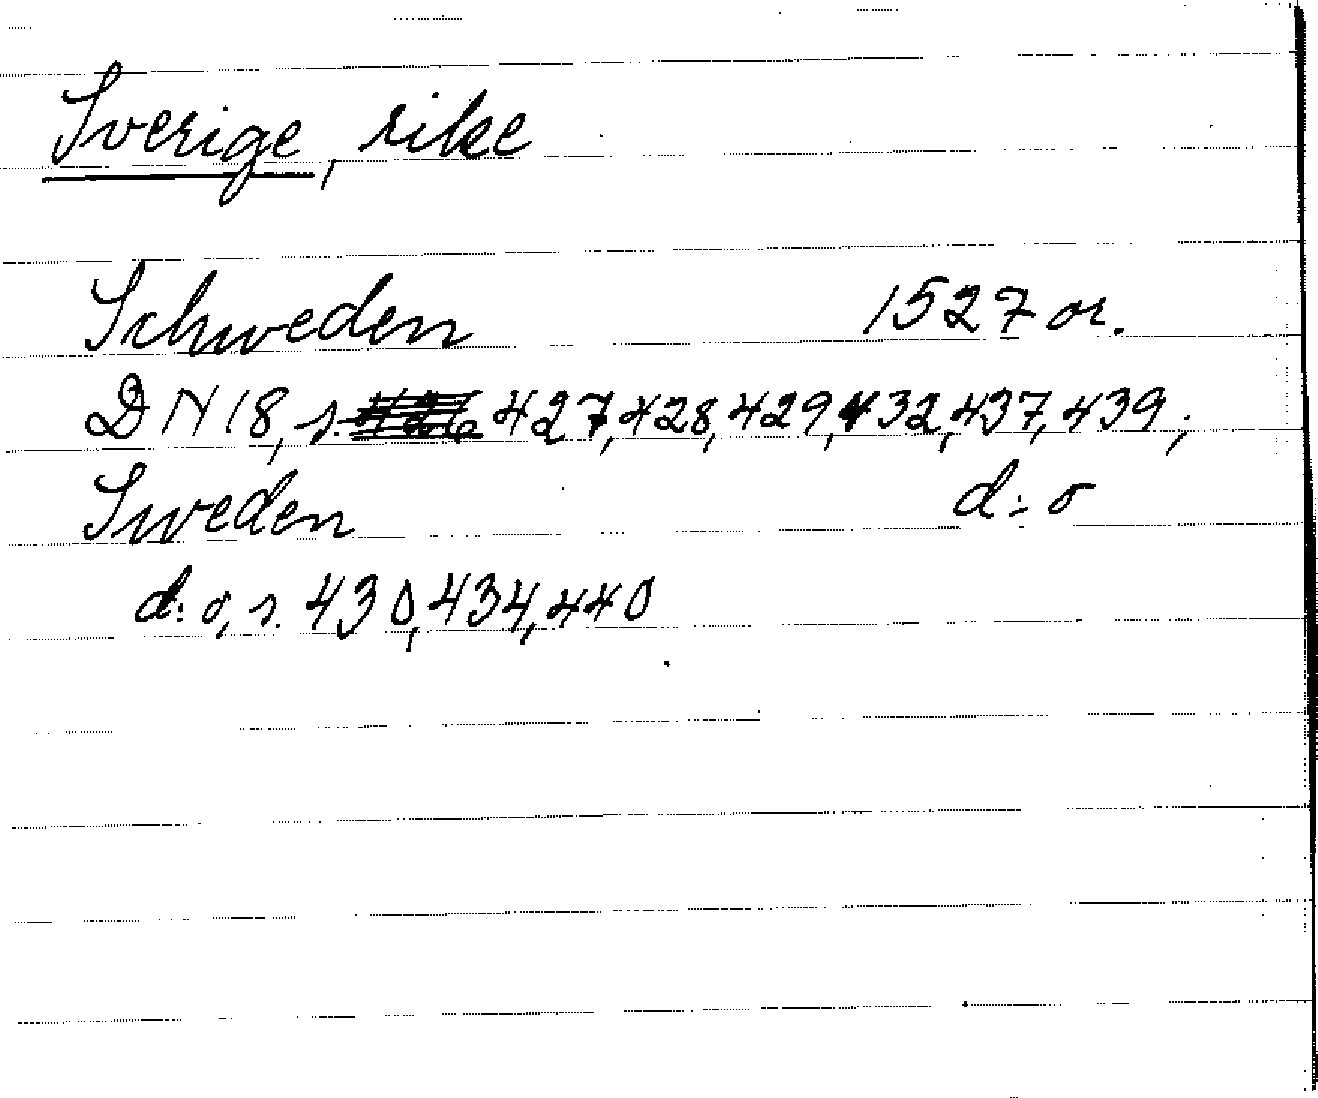 Sverige, rike
Schweden 1527 or.
DN 18, s. 427, 428, 429, 432, 437, 439;
Sweden d:o
d:o, s. 430, 434, 440